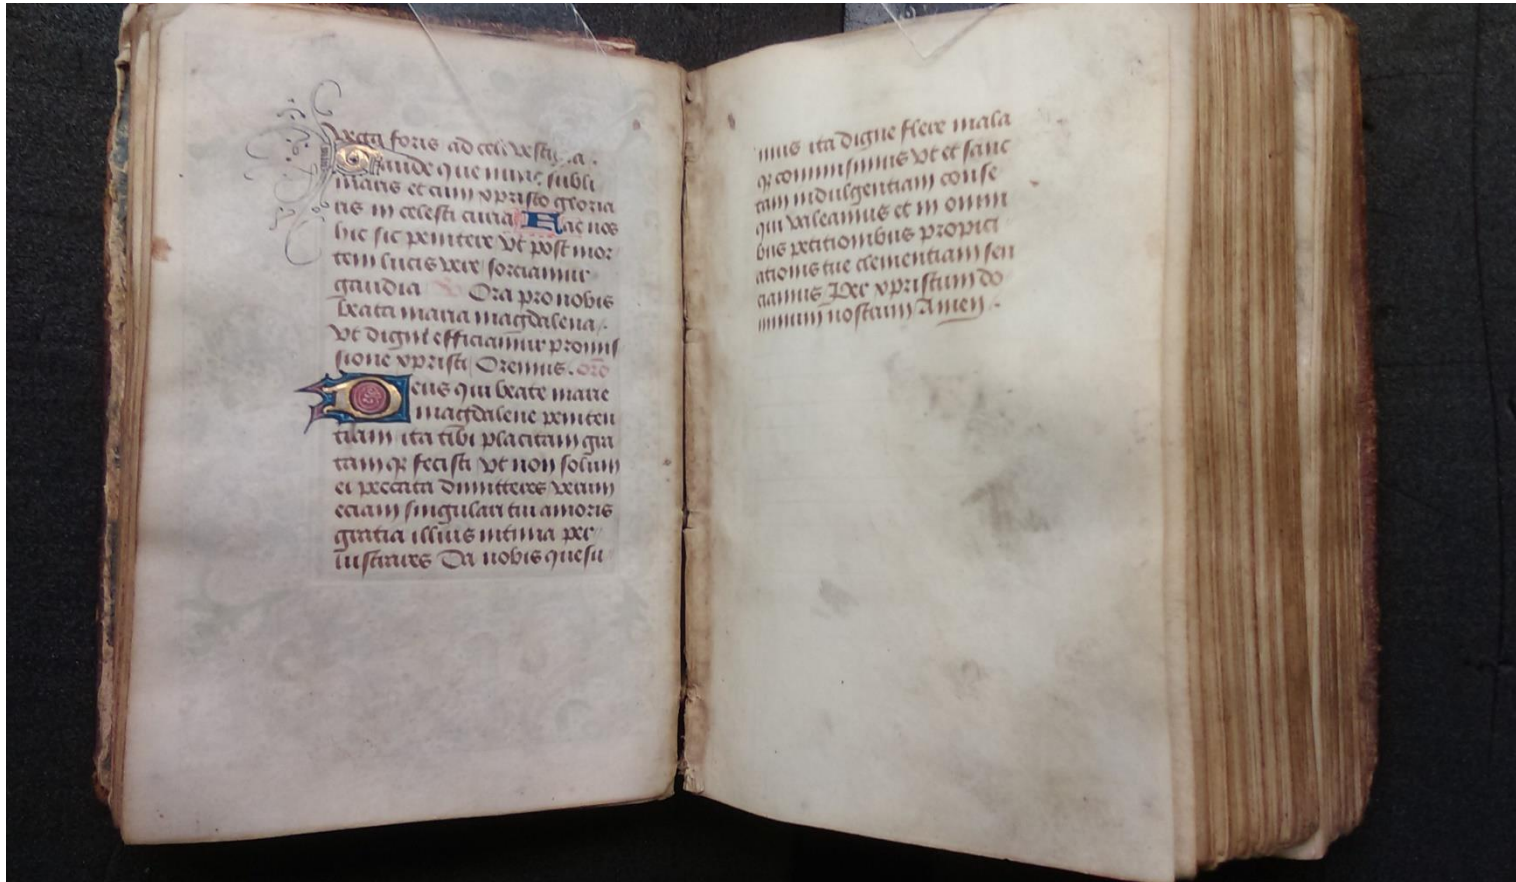 foris ad celi vestigia.
Gaude que nunc subli
maris et cum xpristo gloria
ris in celesti curia Hac nos
hic sic penitere vt post mor
tem lucis vere sorciamur
gaudia Ora pro nobis
beata maria magdalena.
vt digni efficiamur promis
sione xpristi Oremus. oro
Deus qui beate marie
magdalene peniten
tiam ita tibi placitam gra
tamqz fecisti vt non solum
ei peccata dimitteres verum
eciam singulari tui amoris
gratia illius intima per
lustrares Da nobis quesu
mus ita digne flere mala
qz commisimus vt et sanc
tam indulgentiam conse
qui valeamus et in omni
bus petitionibus propici
ationis tue clementiam sen
ciamus Per xpristum do
minum nostrum Amen.